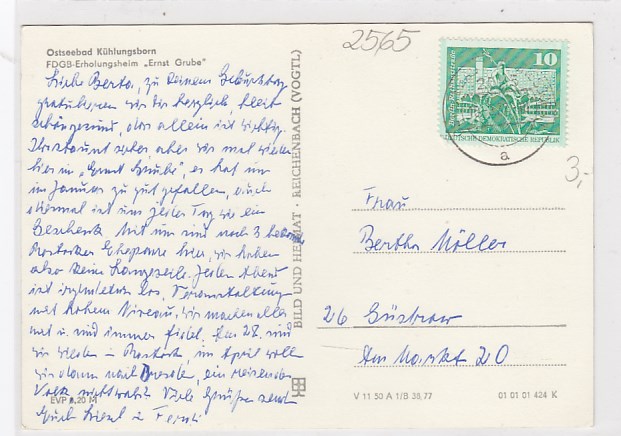 Ostseebad Kühlungsborn
FDGB-Erholungsheim „Ernst Grube"
Liebe Berta, zu Deinem Geburtstag
gratulieren wir Dir herzlich, bleib
schön gesund, das allein ist wichtig.
Ihr staunt sicher, aber wir mal wieder
hier im „Ernst Grube", es hat uns
im Januar zu gut gefallen, auch
diesmal ist uns jeder Tag wie ein
Geschenk. Mit uns sind noch 3 bekannte
Rostocker Ehepaare hier, wir haben
also keine Langeweile. Jeden Abend
ist irgendetwas los, Veranstaltung
mit hohem Niveau, wir machen alles
mit u. sind immer fidel. Am 28. sind
wir wieder in Rostock, im April wollen
wir dann nach Dresden, ein reisendes
Volk nicht wahr? Viele Grüße sendet
Euch
EVP 0,20 M
BILD UND HEIMAT · REICHENBACH (VOGTL)
2565
10
DEUTSCHE DEMOKRATISCHE REPUBLIK
a
3,-
Frau
Bertha Möller
26 Güstrow
Am Markt 20
V 11 50 A 1/B 38/77
01 01 01 424 K